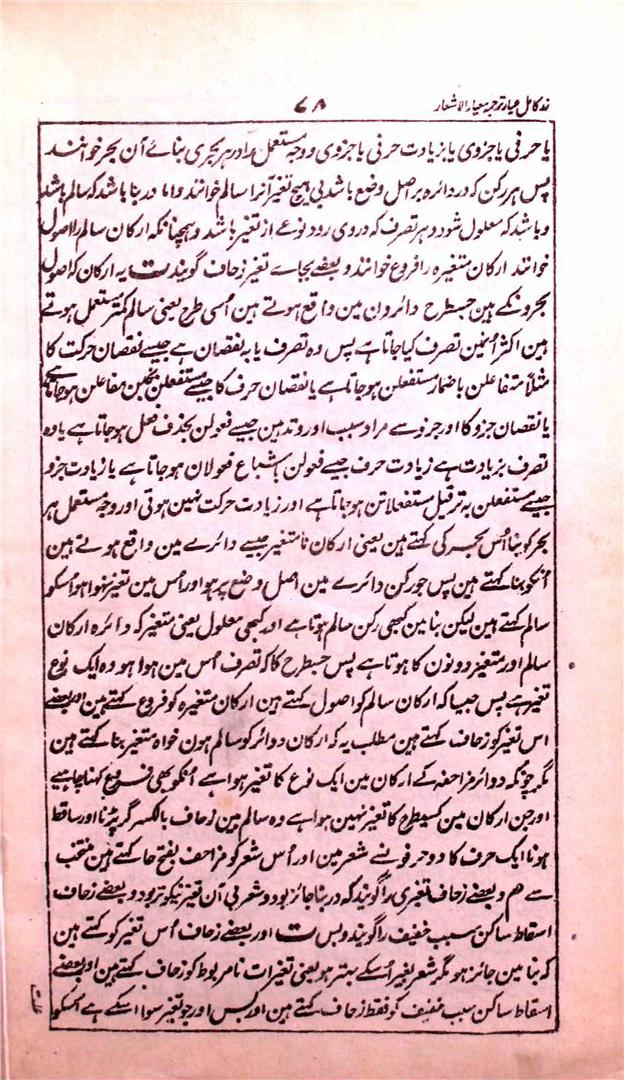 زر کامل عیار ترجمہ معیار الاشعار
۶۸
یا حرفی یا جزوی یا بزیادت حرفی یا جزوی و وجہ مستعمل را در ہر بحری بنائے آن بحر خوانند
پس ہر رکن کہ در دائرہ بر اصل وضع باشد بی ہیچ تغیر آنرا سالم خوانند و اما در بنا باشد کہ سالم باشد
و باشد کہ معلول شود و ہر تصرف کہ در وی رود نوعے از تغیر باشد و ہمچنانکہ ارکان سالم را اصول
خوانند ارکان متغیرہ را فروع خوانند و بعضے بجاے تغیر زحاف گویند ت یہ ارکان کہ اصول
بحرونکے ہین جسطرح دائرون مین واقع ہوتے ہین اُسی طرح یعنی سالم کمتر مستعمل ہوتے
ہین اکثر اُنمین تصرف کیا جاتا ہے پس وہ تصرف یا بہ نقصان ہے جیسے نقصان حرکت کا
مثلاً متفاعلن باضمار مستفعلن ہو جاتا ہے یا نقصان حرف کا جیسے مستفعلن بخبن مفاعلن ہو جاتا ہے
یا نقصان جزو کا اور جزو سے مراد سبب اور وتد ہین جیسے فعولن بحذف فعل ہو جاتا ہے یا وہ
تصرف بزیادت ہے زیادت حرف جیسے فعولن باشباع فعولان ہو جاتا ہے یا زیادت جزو
جیسے مستفعلن بہ ترفیل مستفعلاتن ہو جاتا ہے اور زیادت حرکت نہین ہوتی اور وجہ مستعمل ہر
بحر کو بنا اُس بحر کی کہتے ہین یعنی ارکان نا متغیر جیسے دائرے مین واقع ہوتے ہین
اُنکو بنا کہتے ہین پس جو رکن دائرے مین اصل وضع پر ہو اور اُس مین تغیر نہوا ہو اُسکو
سالم کہتے ہین لیکن بنا مین کبھی رکن سالم ہوتا ہے اور کبھی معلول یعنی متغیر کہ دائرہ ارکان
سالم اور متغیر دونون کا ہوتا ہے پس جسطرح کا کہ تصرف اُس مین ہوا ہو وہ ایک نوع
تغیر ہے پس جیسا کہ ارکان سالم کو اصول کہتے ہین ارکان متغیرہ کو فروع کہتے ہین اور بعضے
اس تغیر کو زحاف کہتے ہین مطلب یہ کہ ارکان دوائر کو سالم ہون خواہ متغیر بنا کہتے ہین
مگر چونکہ دوائر مزاحفہ کے ارکان مین ایک نوع کا تغیر ہوا ہے اُنکو بھی فروع کہنا چاہیے
اور جن ارکان مین کسیطرح کا تغیر نہین ہوا ہے وہ سالم ہین زحاف بالکسر گر پڑنا اور ساقط
ہونا ایک حرف کا دو حرفونسے شعر مین اور اُس شعر کو مزاحف بفتح حا کہتے ہین منتخب
سے ھم و بعضے زحاف تغیری را گویند کہ در بنا جائز بود و شعر بی آن تغیر نیکو تر بود و بعضے زحاف
اسقاط ساکن سبب خفیف را گویند و بس ت اور بعضے زحاف اُس تغیر کو کہتے ہین
کہ بنا مین جائز ہو مگر شعر بغیر اُسکے بہتر ہو یعنی تغیرات نا مربوط کو زحاف کہتے ہین اور بعضے
اسقاط ساکن سبب خفیف کو فقط زحاف کہتے ہین اور بس اور جو تغیر سوا اسکے ہے اُسکو